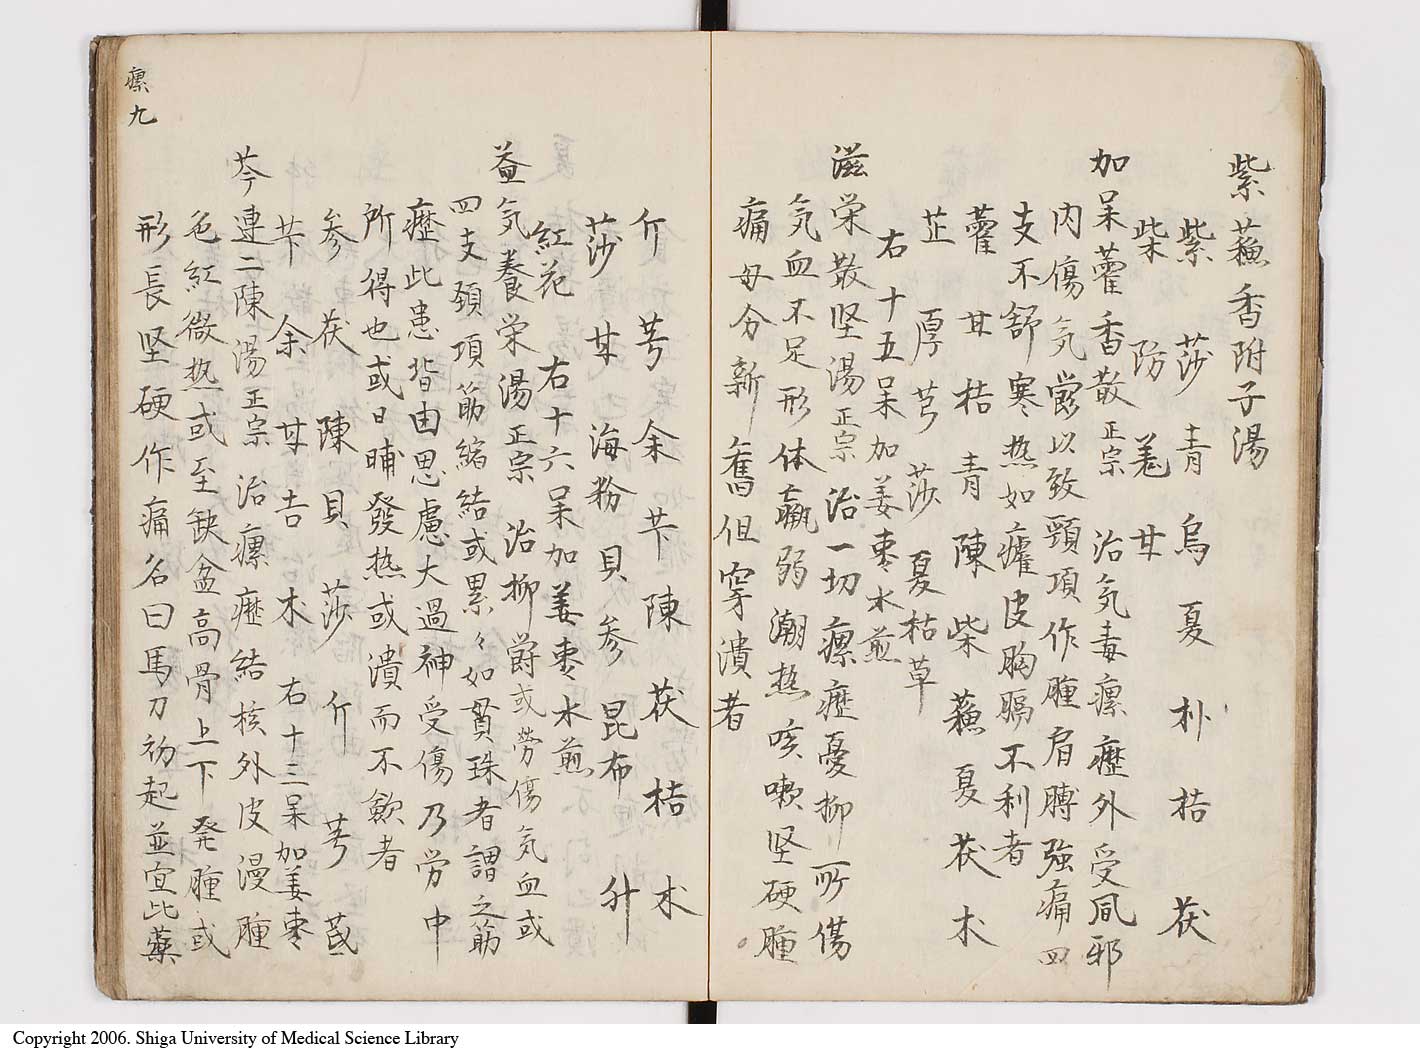 紫蘓香附子湯
紫 莎 青 烏 夏 朴 桔 茯
柴 防 羗 甘
加呆藿香散 正宗 治気毒瘰癧外受風邪
内傷気欝以致頸項作腫肩膊強痛四
支不舒寒热如瘧皮胸膈不利者
藿 甘 桔 青 陳 柴 蘓 夏 茯 朮
芷 厚 芎 莎 夏枯草
右十五呆加姜棗水煎
滋栄散堅湯 正宗 治一切瘰癧憂抑所傷
気血不足形体羸弱潮热咳嗽坚硬腫
痛毋分新舊但穿潰者
芎 余 芐 陳 茯 桔 朮
莎 甘 海粉 貝 参 昆布 升
紅花 右十六呆加姜棗水煎
益気養栄湯 正宗 治抑欝或勞傷気血或
四支頚項筋縮結或累々如貫珠者謂之筋
癧此患皆由思慮大過神受傷乃労中
所得也或日晡發热或潰而不歛者
参 茯 陳 貝 莎 芎 芪
芐 余 甘 吉 朮 右十三呆加姜棗
芩連二陳湯 正宗 治瘰癧結核外皮漫腫
色紅微热或至缺盆高骨上下発腫或
形長坚硬作痛名曰馬刀初起並宜此藥
瘰九
Copyright 2006. Shiga University of Medical Science Library